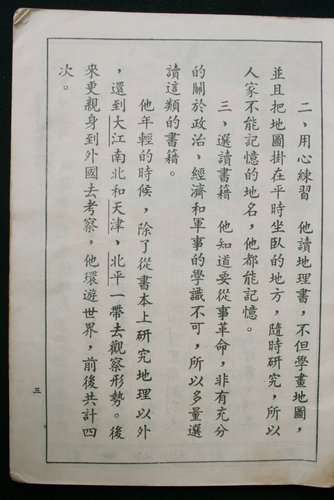 二、用心練習　他讀地理書，不但學畫地圖，
並且把地圖掛在平時坐臥的地方，隨時研究，所以
人家不能記憶的地名，他都能記憶。
三、選讀書籍　他知道要從事革命，非有充分
的關於政治、經濟和軍事的學識不可，所以多量選
讀這類的書籍。
他年輕的時候，除了從書本上研究地理以外
，還到大江南北和天津、北平一帶去觀察形勢。後
來更親身到外國去考察，他環遊世界，前後共計四
次。
三